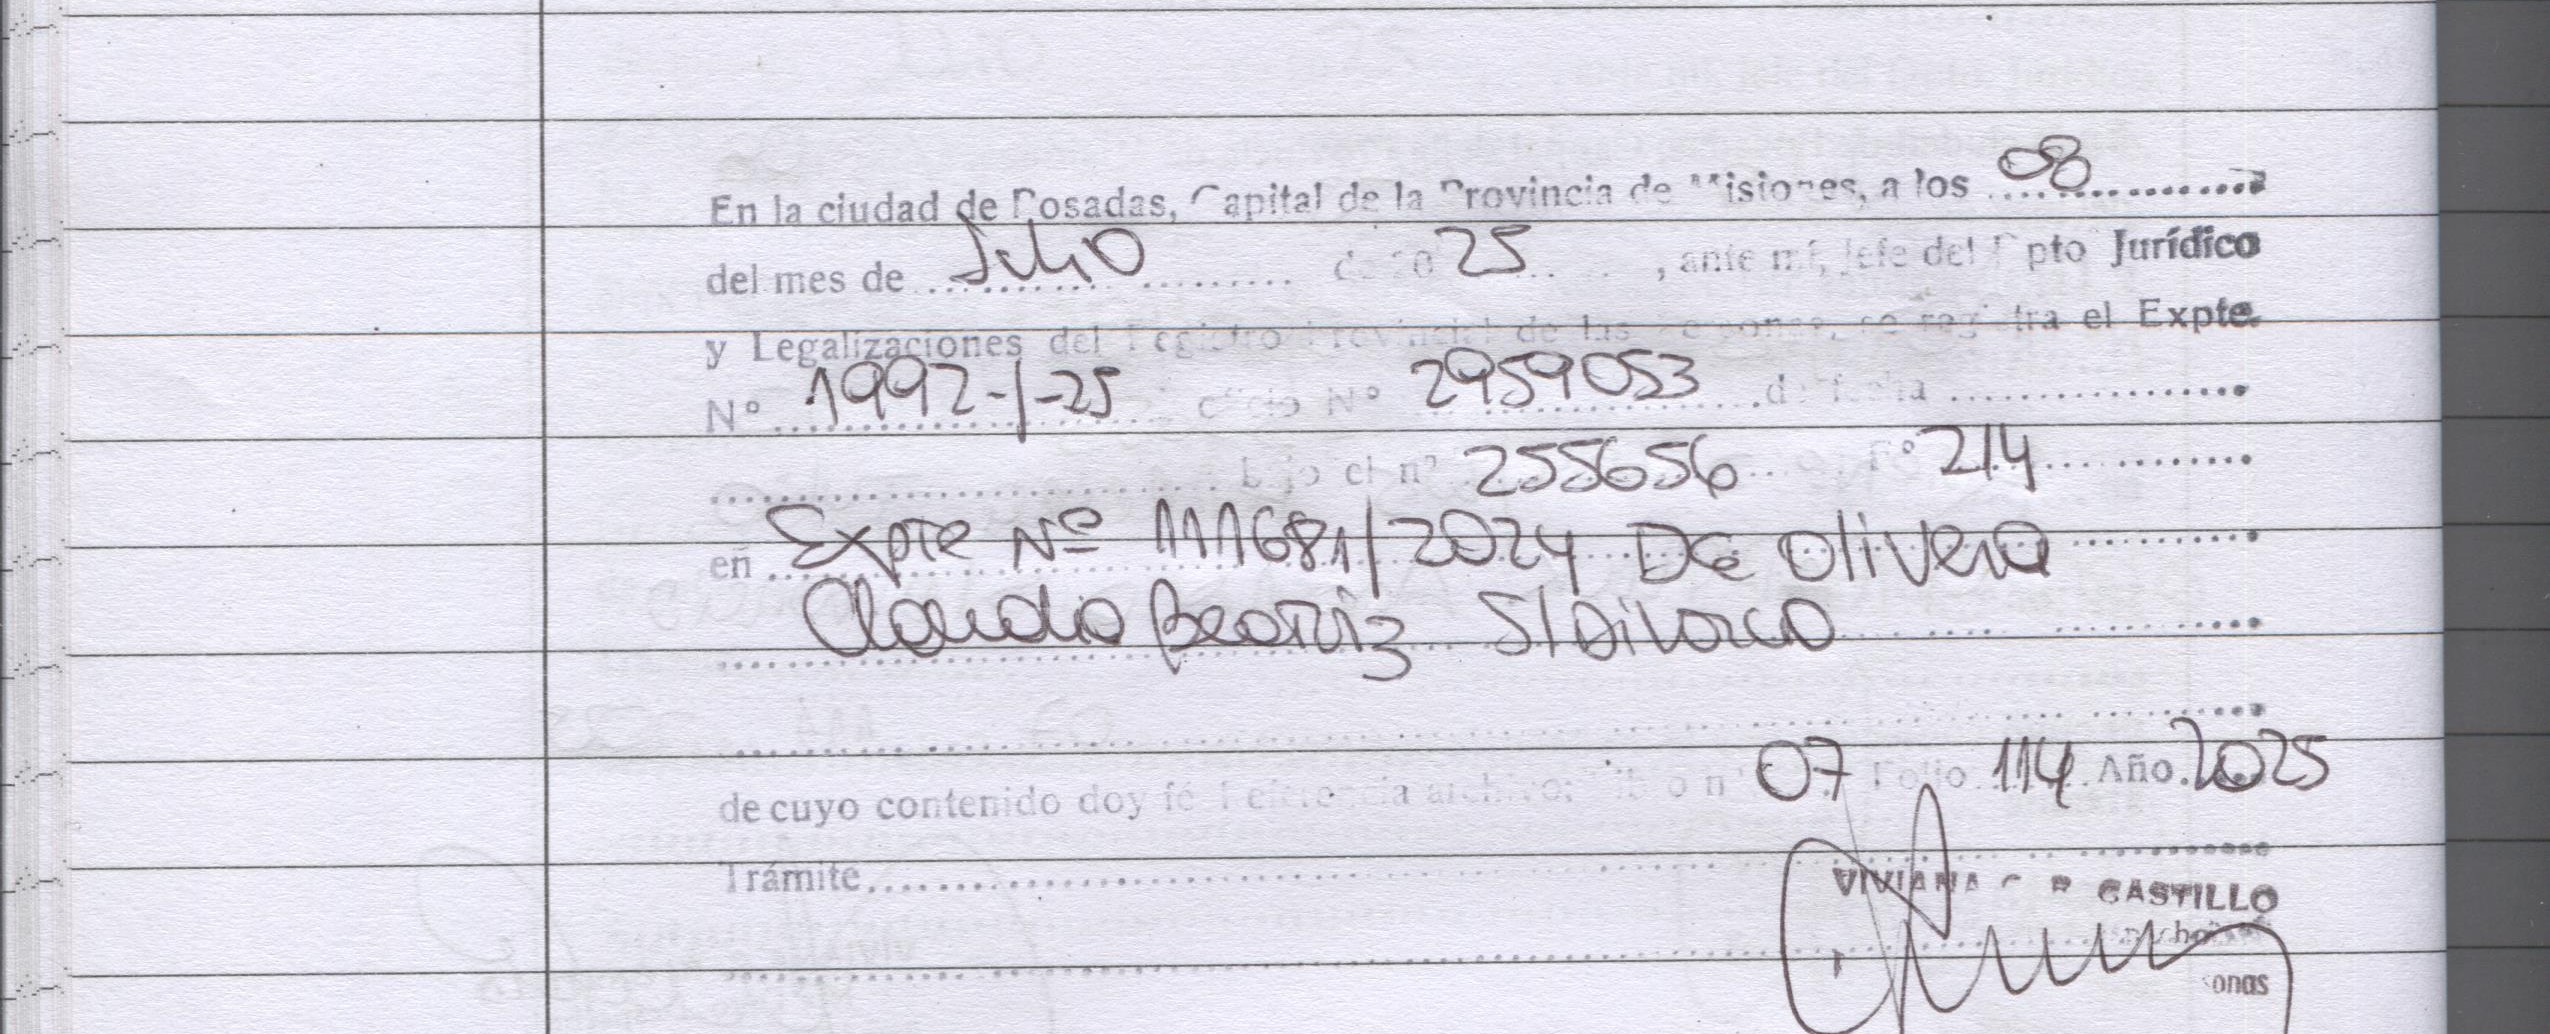 En la ciudad de Posadas, Capital de la Provincia de Misiones, a los 08
del mes de Julio de 20 25, ante mí, Jefe del Dpto Jurídico
y Legalizaciones del Registro Provincial de las Personas, se registra el Expte.
Nº 1992-1-25 oficio Nº 2959053 de fecha
bajo el nº 255656 Fº 214
en Expte Nº 111681/2024 De Olivera
Claudia Beatriz S/Divorcio
de cuyo contenido doy fé Referencia archivo: Libro nº 07 Folio 114 Año 2025
Trámite
VIVIANA CASTILLO